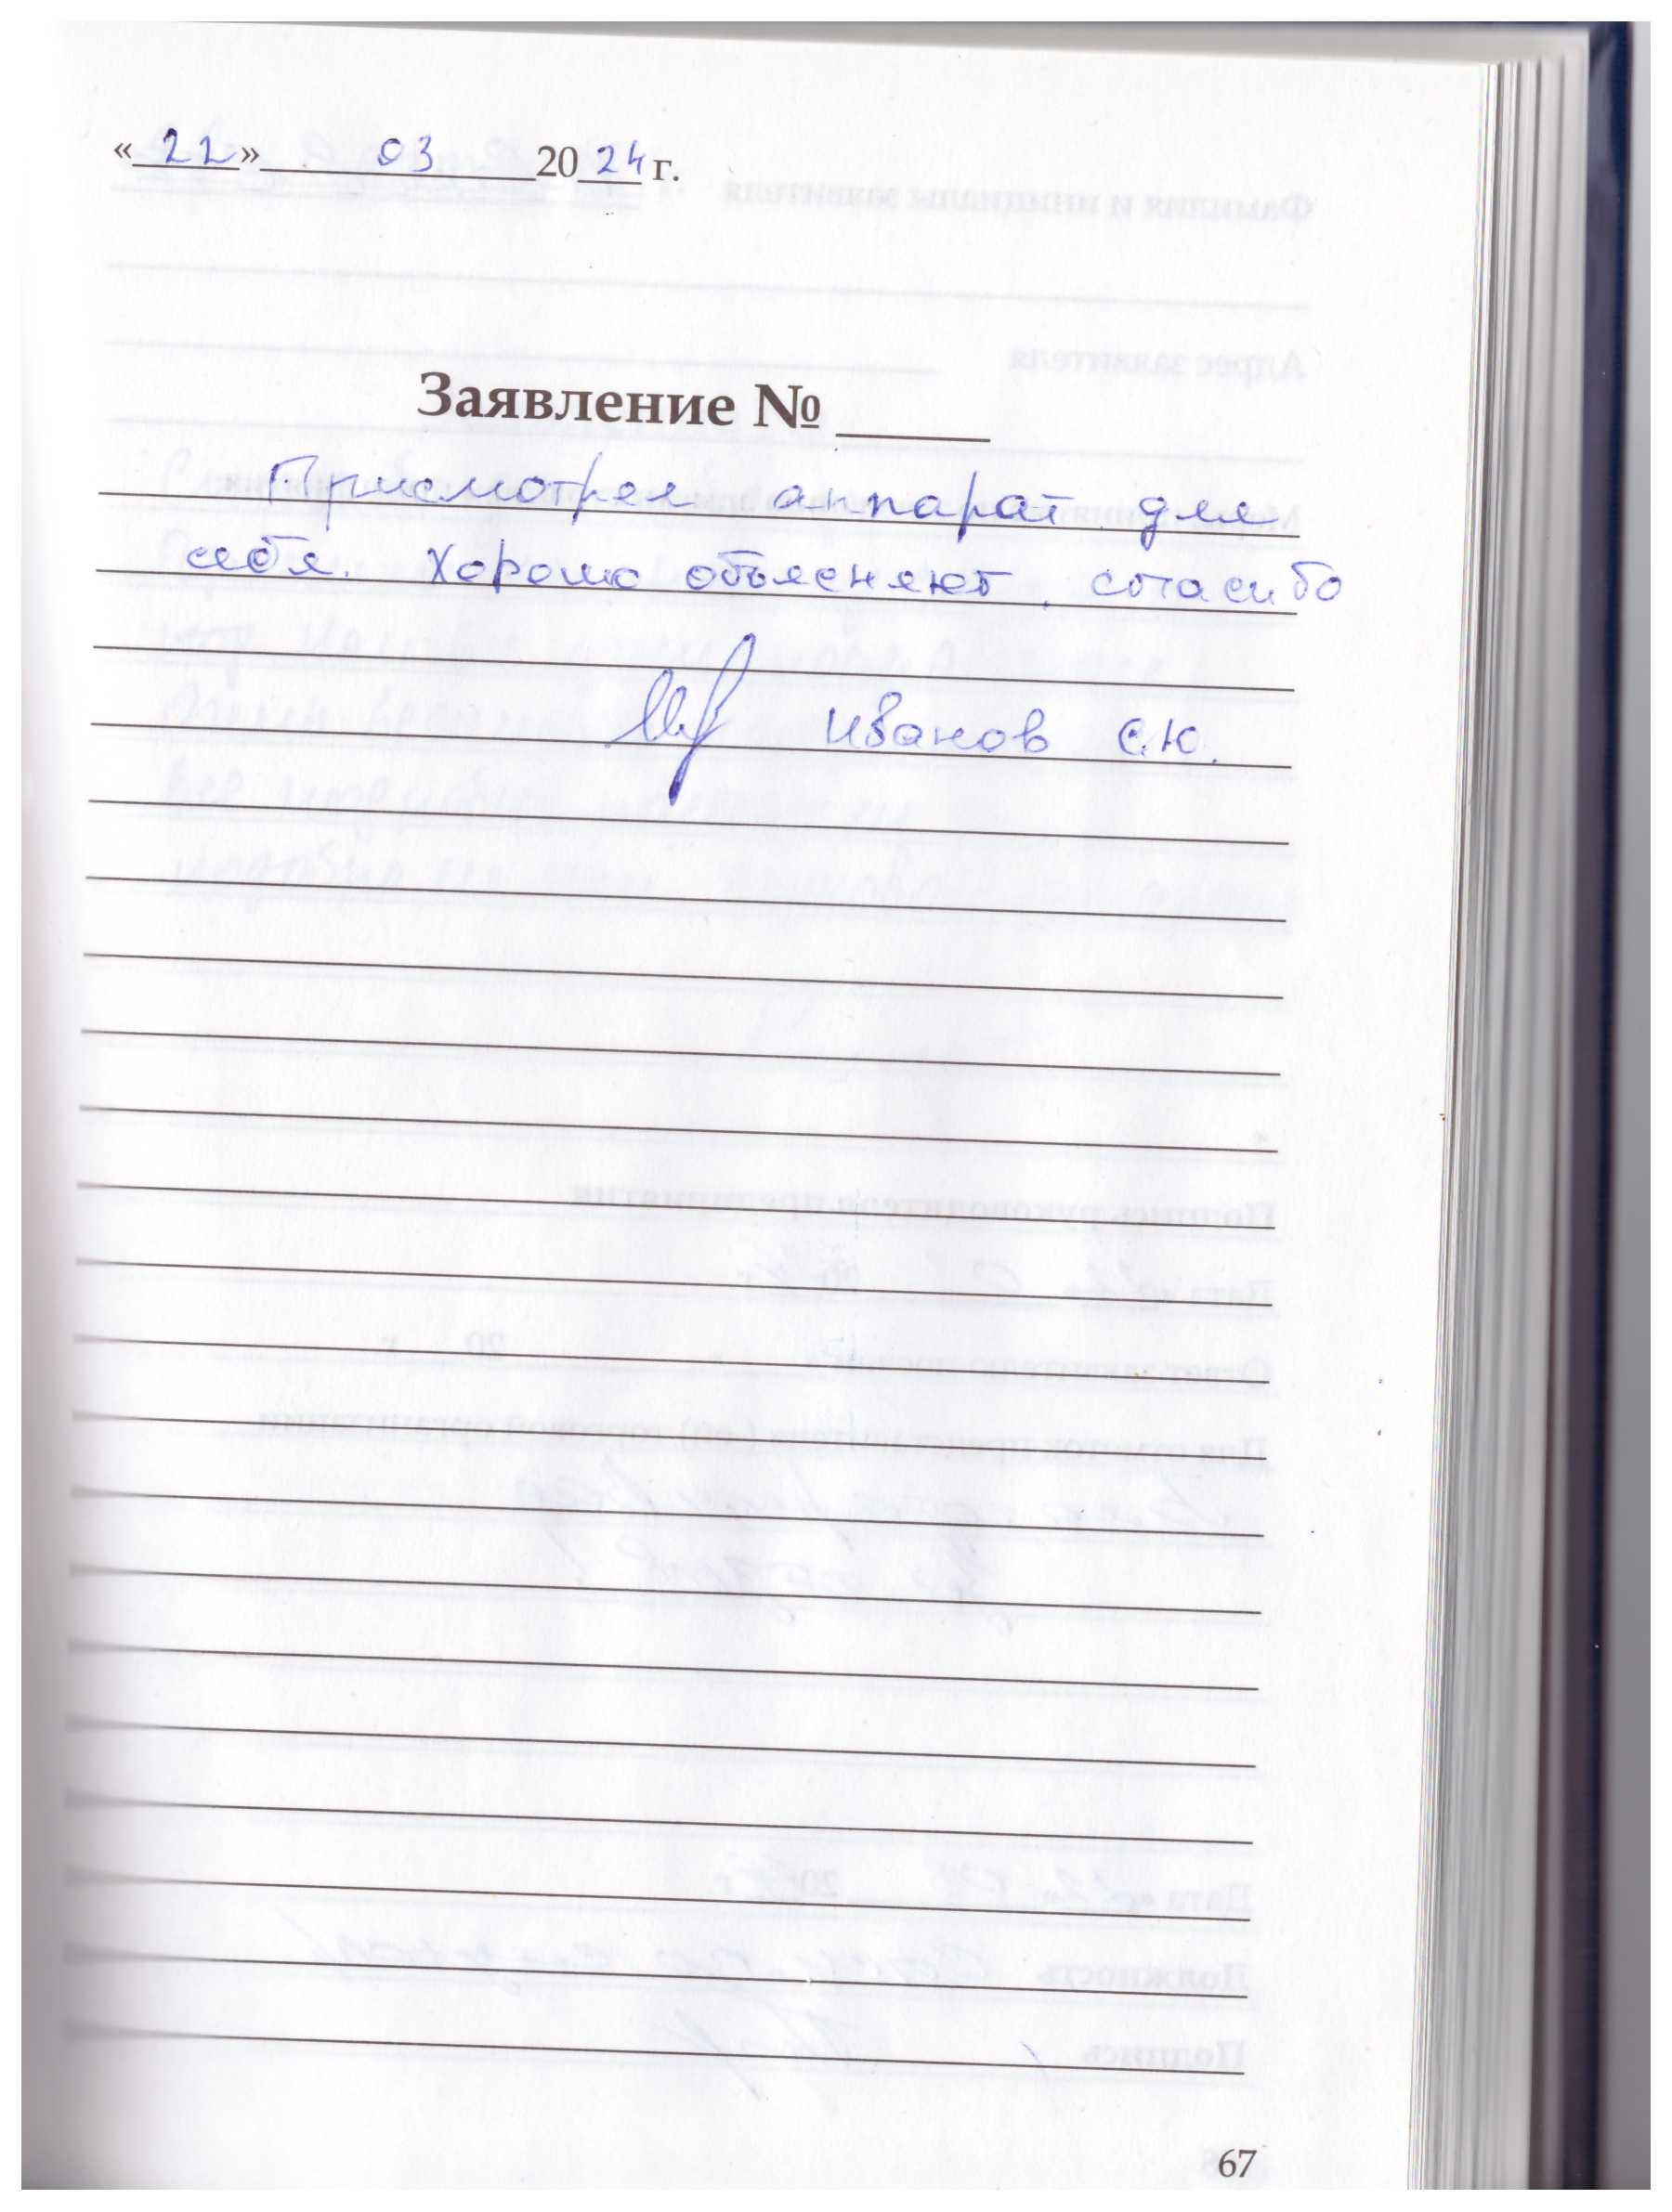 «22» 03 2024 г.
Заявление № ____
Присмотрел аппарат для
себя. Хорошо объясняют, спасибо
Иванов С.Ю.
67